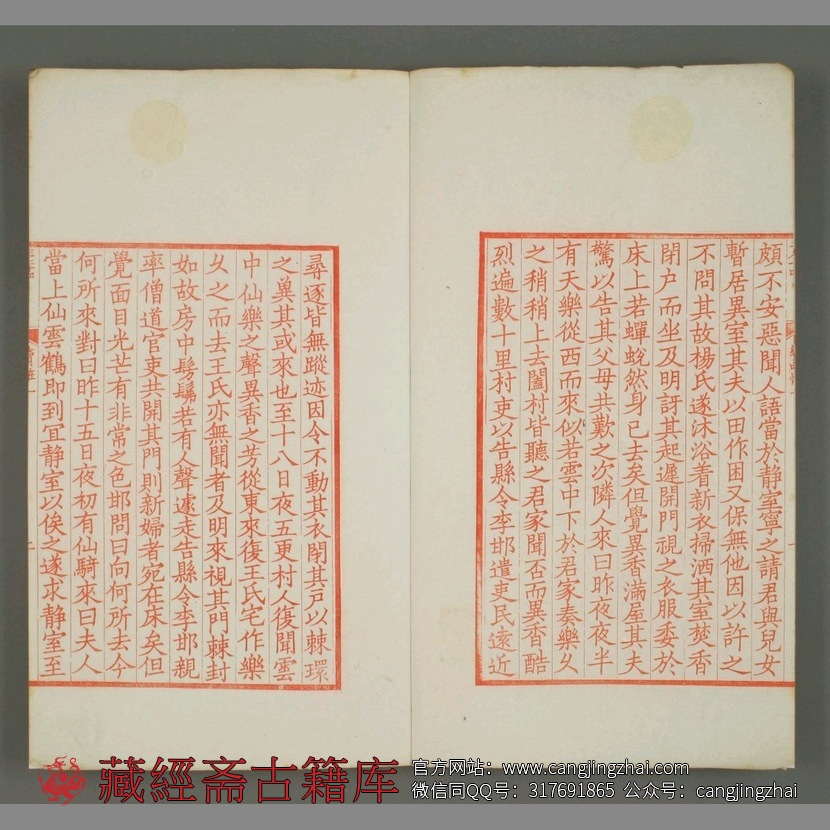 頗不安惡聞人語當於靜室寧之請君與兒女
暫居異室其夫以田作困又保無他因以許之
不問其故楊氏遂沐浴着新衣掃洒其室焚香
閉户而坐及明訝其起遲開門視之衣服委於
床上若蟬蛻然身已去矣但覺異香滿屋其夫
驚以告其父母共歎之次隣人來曰昨夜夜半
有天樂從西而來似若雲中下於君家奏樂久
之稍稍上去闔村皆聽之君家聞否而異香酷
烈遍數十里村吏以告縣令李邯遣吏民遠近
尋逐皆無蹤迹因令不動其衣閉其户以棘環
之兾其或來也至十八日夜五更村人復聞雲
中仙樂之聲異香之芳從東來復王氏宅作樂
久之而去王氏亦無聞者及明來視其門棘封
如故房中髣髴若有人聲遽走告縣令李邯親
率僧道官吏共開其門則新婦者宛在床矣但
覺面目光芒有非常之色邯問曰向何所去今
何所來對曰昨十五日夜初有仙騎來曰夫人
當上仙雲鶴即到宜静室以俟之遂求静室至
藏經斋古籍库
官方网站：www.cangjingzhai.com
微信同QQ号：317691865 公众号：cangjingzhai